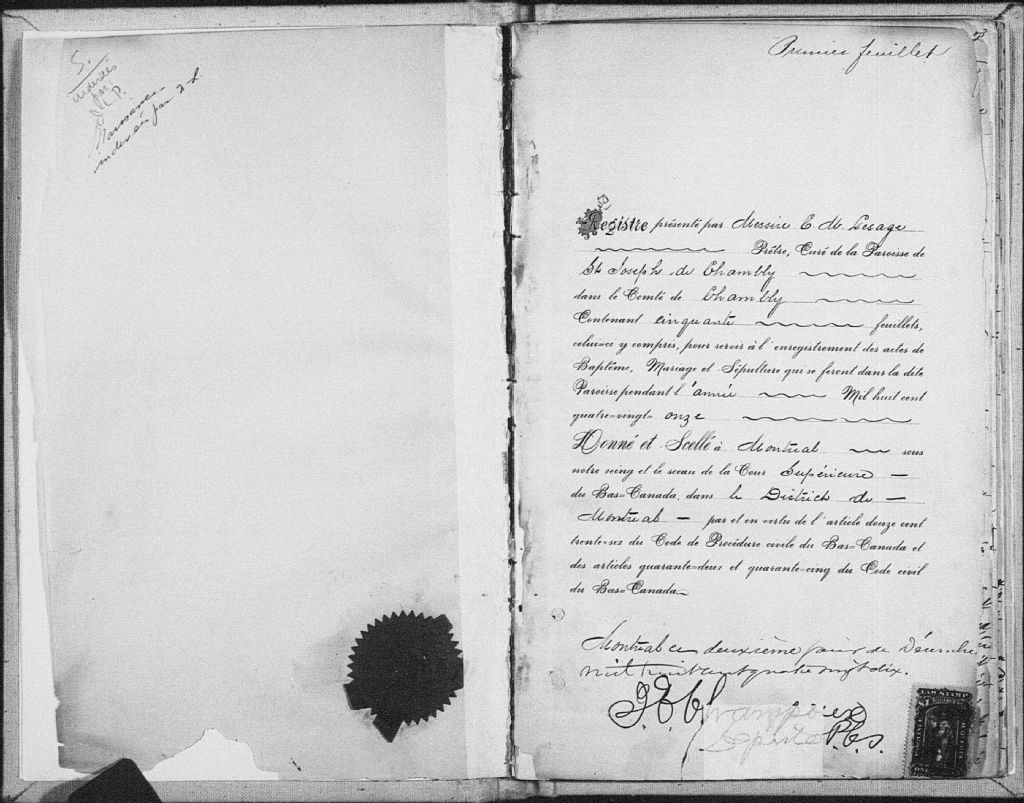 S.
indexés
par
J. L. P.
Naissances
indexés par J-L.
Premier feuillet
Registre présenté par Messire C. M. Lesage
Prêtre, Curé de la Paroisse de
St Joseph de Chambly
dans le Comté de Chambly
Contenant cinquante feuillets,
celui-ci y compris, pour servir à l'enregistrement des actes de
Baptême, Mariage et Sépulture qui se feront dans la dite
Paroisse pendant l'année Mil huit cent
quatre-vingt-onze
Donné et Scellé à Montréal sous
notre seing et le sceau de la Cour Supérieure
du Bas-Canada, dans le District de
Montréal par et en vertu de l'article douze cent
trente-six du Code de Procédure civile du Bas-Canada et
des articles quarante-deux et quarante-cinq du Code civil
du Bas-Canada.
Montréal ce deuxième jour de Décembre
mil huit cent quatre vingt dix.
Député P.C.S.
LAW STAMP